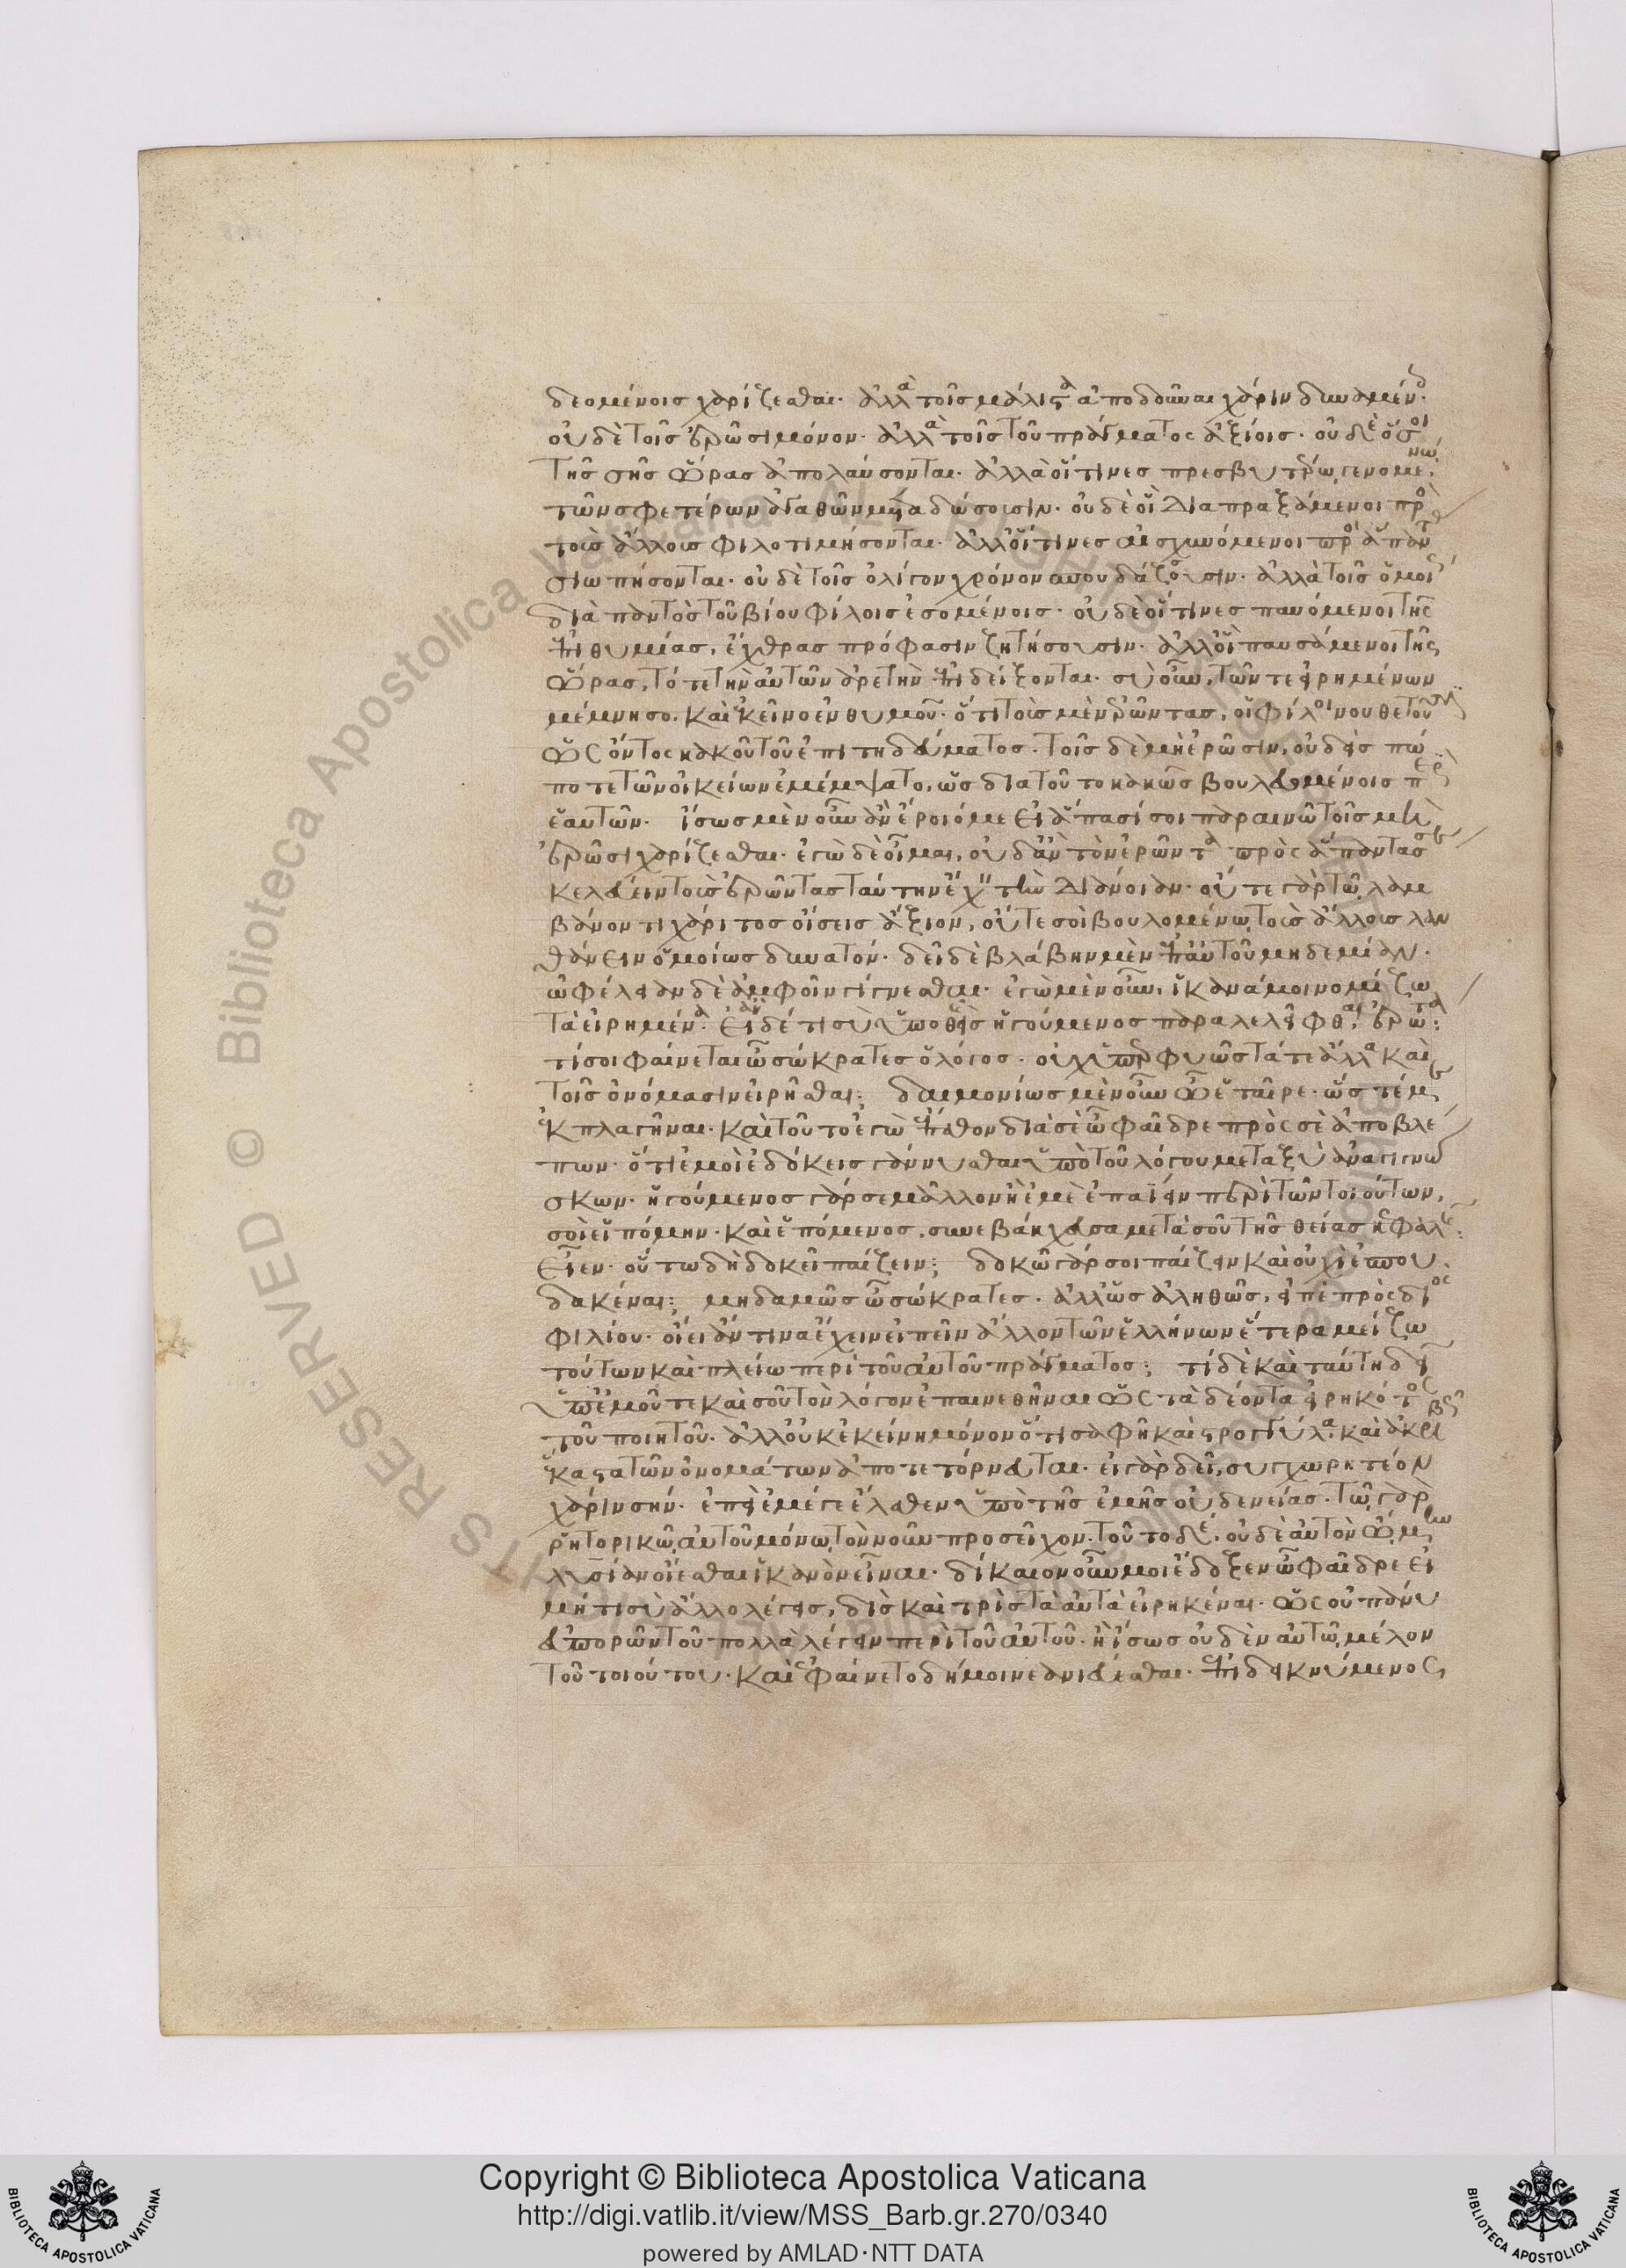 δεομένοις χαρίζεσθαι· ἀλλὰ τοῖς μάλιστα ἀποδοῦναι χάριν δυναμένοις·
οὐδὲ τοῖς ἐρῶσι μόνον· ἀλλὰ τοῖς τοῦ πράγματος ἀξίοις· οὐδὲ ὅσοι
τῆς σῆς ὥρας ἀπολαύσονται· ἀλλὰ οἵτινες πρεσβυτέρῳ γενομένῳ
τῶν σφετέρων ἀγαθῶν μεταδώσουσιν· οὐδὲ οἳ διαπραξάμενοι πρὸς
τοὺς ἄλλους φιλοτιμήσονται· ἀλλ' οἵτινες αἰσχυνόμενοι πρὸς ἅπαντας
σιωπήσονται· οὐδὲ τοῖς ὀλίγον χρόνον σπουδάζουσιν· ἀλλὰ τοῖς ὁμοίως
διὰ παντὸς τοῦ βίου φίλοις ἐσομένοις· οὐδὲ οἵτινες παυόμενοι τῆς
ἐπιθυμίας, ἔχθρας πρόφασιν ζητήσουσιν· ἀλλ' οἳ παυσάμενοι τῆς
ὥρας, τότε τὴν αὐτῶν ἀρετὴν ἐπιδείξονται· σὺ οὖν, τῶν τε εἰρημένων
μέμνησο, καὶ ἐκεῖνο ἐνθυμοῦ· ὅτι τοὺς μὲν ἐρῶντας, οἱ φίλοι νουθετοῦσιν
ὡς ὄντος κακοῦ τοῦ ἐπιτηδεύματος· τοῖς δὲ μὴ ἐρῶσιν, οὐδεὶς πώ
ποτε τῶν οἰκείων ἐμέμψατο, ὡς διὰ τοῦτο κακῶς βουλευομένοις περὶ
ἑαυτῶν· ἴσως μὲν οὖν ἂν ἔροιό με εἰ ἅπασί σοι παραινῶ τοῖς μὴ
ἐρῶσι χαρίζεσθαι· ἐγὼ δὲ οἶμαι, οὐδ' ἂν τὸν ἐρῶντα πρὸς ἅπαντάς σε
κελεύειν τοὺς ἐρῶντας ταύτην ἔχειν τὴν διάνοιαν· οὔτε γὰρ τῷ λαμ
βάνοντι χάριτος οἴσεις ἄξιον, οὔτε σοὶ βουλομένῳ τοὺς ἄλλους λαν
θάνειν ὁμοίως δυνατόν· δεῖ δὲ βλάβην μὲν ἀπ' αὐτοῦ μηδεμίαν·
ὠφέλειαν δὲ ἀμφοῖν γίγνεσθαι· ἐγὼ μὲν οὖν, ἱκανά μοι νομίζω
τὰ εἰρημένα· εἰ δέ τι σὺ ὑποθεὶς ἡγούμενος παραλελεῖφθαι, ἐρώτα:
τί σοι φαίνεται ὦ σώκρατες ὁ λόγος· οὐχ ὑπερφυῶς τά τε ἄλλα καὶ
τοῖς ὀνόμασιν εἰρῆσθαι; δαιμονίως μὲν οὖν ὦ ἑταῖρε· ὥστέ με
ἐκπλαγῆναι· καὶ τοῦτο ἐγὼ ἔπαθον διὰ σὲ ὦ φαῖδρε πρὸς σὲ ἀποβλέ
πων· ὅτι ἐμοὶ ἐδόκεις γάννυσθαι ὑπὸ τοῦ λόγου μεταξὺ ἀναγιγνώ
σκων· ἡγούμενος γάρ σε μᾶλλον ἢ ἐμὲ ἐπαΐειν περὶ τῶν τοιούτων,
σοὶ εἱπόμην· καὶ ἑπόμενος, συνεβάκχευσα μετὰ σοῦ τῆς θείας κεφαλῆς:
εἶεν· οὕτω δὴ δοκεῖ παίζειν; δοκῶ γάρ σοι παίζειν καὶ οὐχὶ ἐσπου
δακέναι; μηδαμῶς ὦ σώκρατες· ἀλλ' ὡς ἀληθῶς, εἰπὲ πρὸς διὸς
φιλίου· οἴει ἄν τινα ἔχειν εἰπεῖν ἄλλον τῶν ἑλλήνων ἕτερα μείζω
τούτων καὶ πλείω περὶ τοῦ αὐτοῦ πράγματος; τί δὲ καὶ ταύτῃ δεῖ
ὑπ' ἐμοῦ τε καὶ σοῦ τὸν λόγον ἐπαινεθῆναι ὡς τὰ δέοντα εἰρηκότος
τοῦ ποιητοῦ· ἀλλ' οὐκ ἐκείνῃ μόνον ὅτι σαφῆ καὶ στρογγύλα καὶ ἀκριβῶς
ἕκαστα τῶν ὀνομάτων ἀποτετόρνευται· εἰ γὰρ δεῖ, συγχωρητέον
χάριν σήν· ἐπεὶ ἐμέ γε ἔλαθεν ὑπὸ τῆς ἐμῆς οὐδενείας· τῷ γὰρ
ῥητορικῷ αὐτοῦ μόνῳ τὸν νοῦν προσεῖχον· τοῦτο δὲ, οὐδὲ αὐτὸν ᾤμην
λυσίαν οἴεσθαι ἱκανὸν εἶναι· δίκαιον οὖν μοι ἔδοξεν ὦ φαῖδρε εἰ
μή τι σὺ ἄλλο λέγεις, δὶς καὶ τρὶς τὰ αὐτὰ εἰρηκέναι· ὡς οὐ πάνυ
εὐπορῶν τοῦ πολλὰ λέγειν περὶ τοῦ αὐτοῦ· ἢ ἴσως οὐδὲν αὐτῷ μέλον
τοῦ τοιούτου· καὶ ἐφαίνετο δή μοι νεανιεύεσθαι· ἐπιδεικνύμενος
Copyright © Biblioteca Apostolica Vaticana
http://digi.vatlib.it/view/MSS_Barb.gr.270/0340
powered by AMLAD·NTT DATA
BIBLIOTECA APOSTOLICA VATICANA
BIBLIOTECA APOSTOLICA VATICANA